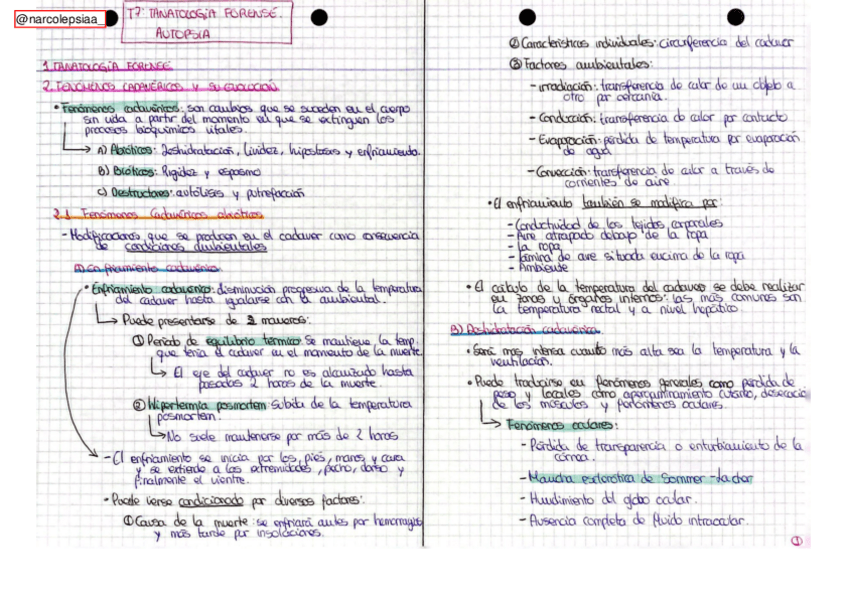 @narcolepsiaa_
T7: TANATOLOGÍA FORENSE.
AUTOPSIA
1. TANATOLOGÍA FORENSE
2. FENÓMENOS CADAVÉRICOS Y SU EVOLUCIÓN
• Fenómenos cadavéricos: son cambios que se suceden en el cuerpo
sin vida a partir del momento en que se extinguen los
procesos bioquímicos vitales.
→ A) Abióticos: Deshidratación, lividez, hipostasis y enfriamiento.
B) Bióticos: Rigidez y espasmo
C) Destructores: autólisis y putrefacción
2.1 Fenómenos Cadavéricos abióticos
- Modificaciones que se producen en el cadáver como consecuencia
de condiciones ambientales
A) Enfriamiento cadavérico
• Enfriamiento cadavérico: disminución progresiva de la temperatura
del cadáver hasta igualarse con la ambiental.
→ Puede presentarse de 2 maneras:
① Periodo de equilibrio térmico: Se mantiene la temp.
que tenía el cadáver en el momento de la muerte.
→ El eje del cadáver no es alcanzado hasta
pasadas 2 horas de la muerte.
② Hipertermia posmortem: Subida de la temperatura
posmortem.
→ No suele mantenerse por más de 2 horas
- El enfriamiento se inicia por los pies, manos y cara
y se extiende a las extremidades, pecho, dorso y
finalmente el vientre.
• Puede verse condicionado por diversos factores:
① Causa de la muerte: se enfriará antes por hemorragias
y más tarde por insolaciones.
② Características individuales: circunferencia del cadáver
③ Factores ambientales:
- irradiación: transferencia de calor de un objeto a
otro por cercanía.
- Conducción: transferencia de calor por contacto
- Evaporación: pérdida de temperatura por evaporación
de agua
- Convección: transferencia de calor a través de
corrientes de aire
• El enfriamiento también se modifica por:
- Conductividad de los tejidos corporales
- Aire atrapado debajo de la ropa
- La ropa
- Lámina de aire situada encima de la ropa
- Ambiente
• El cálculo de la temperatura del cadáver se debe realizar
en zonas y órganos internos: las más comunes son
la temperatura rectal y a nivel hepático.
B) Deshidratación cadavérica
• Será más intensa cuanto más alta sea la temperatura y la
ventilación.
• Puede traducirse en fenómenos generales como pérdida de
peso y locales como apergaminamiento cutáneo, desecación
de las mucosas y fenómenos oculares.
→ Fenómenos oculares:
- Pérdida de transparencia o enturbiamiento de la
córnea.
- Mancha esclerótica de Sommer-Larcher
- Hundimiento del globo ocular.
- Ausencia completa de fluido intraocular.
①